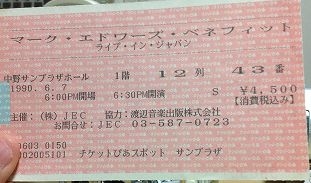 マーク・エドワーズ・ベネフィット
ライブ・イン・ジャパン
中野サンプラザホール 1階 12列 43番
1990. 6. 7 S ¥4,500
6:00PM開場 6:30PM開演 【消費税込み】
主催:(株)JEC 協力:渡辺音楽出版株式会社
お問合せ:JEC 03-587-0723
0603 0150
002005101 チケットぴあスポット サンプラザ